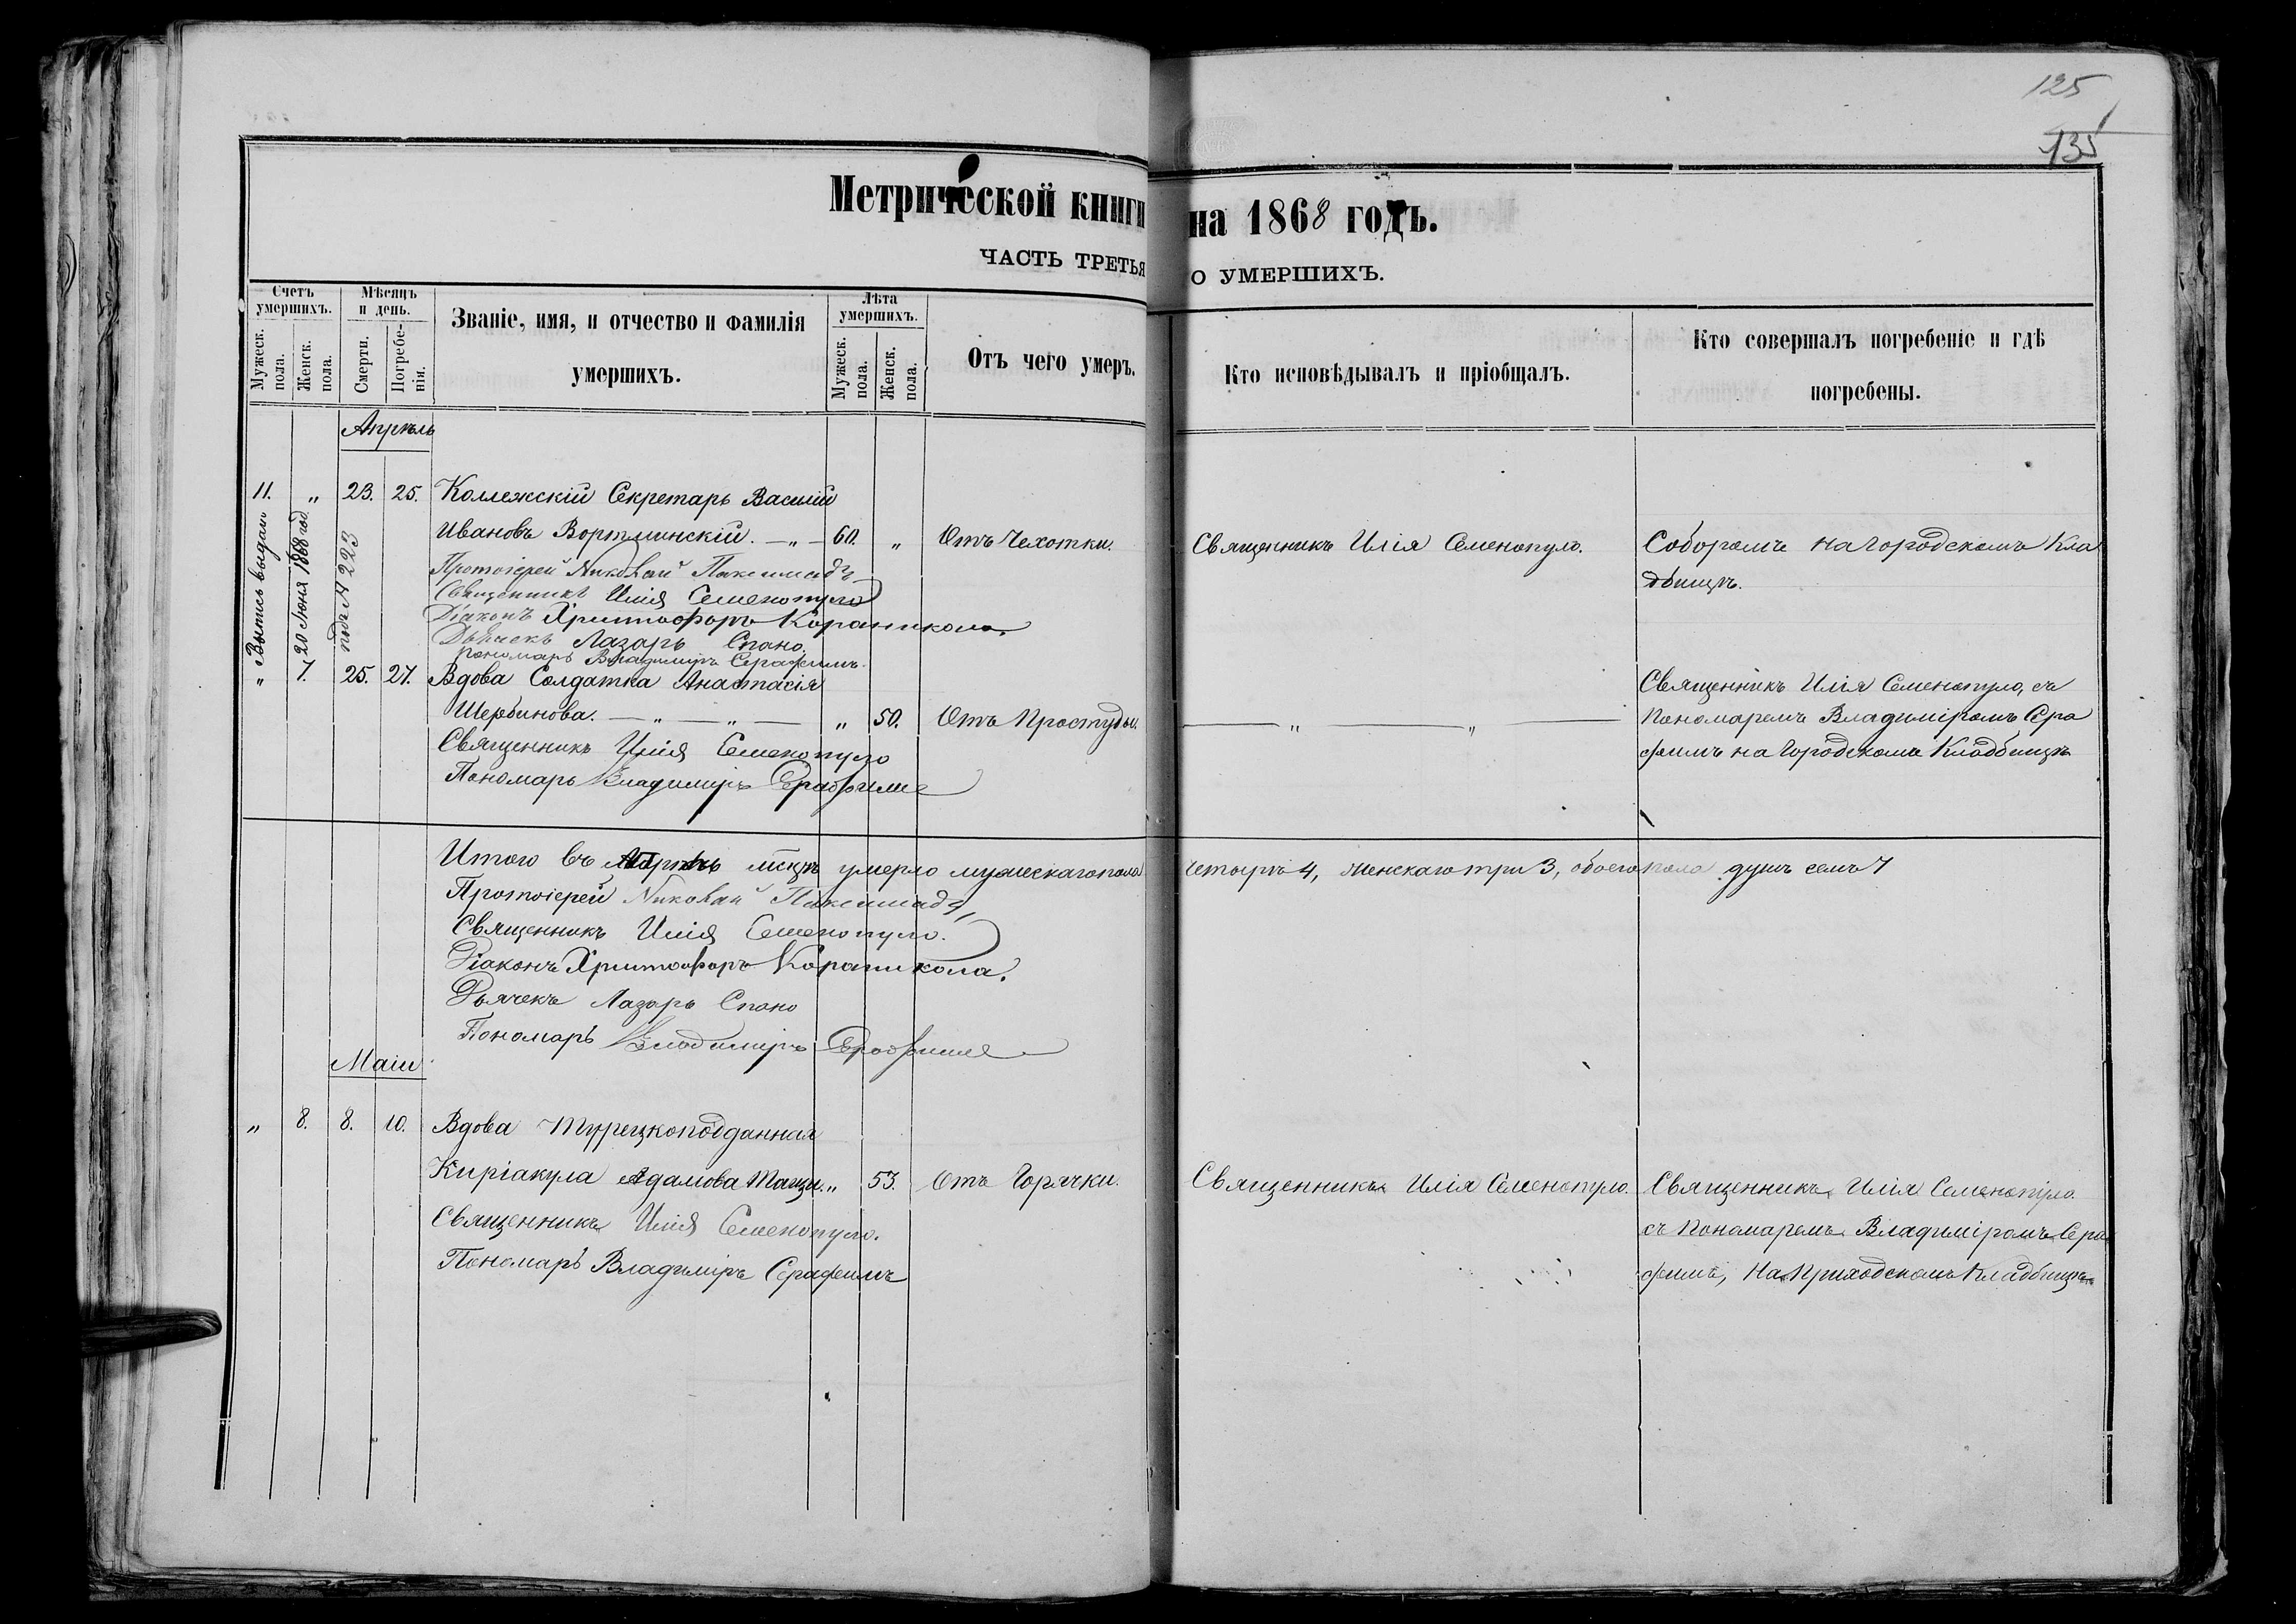 125
135
Метрической книги на 1868 годъ.
ЧАСТЬ ТРЕТЬЯ О УМЕРШИХЪ.
Счетъ умершихъ.
Мужеск. пола.
Женск. пола.
Мѣсяцъ и день.
Смерти.
Погребенія.
Званіе, имя, и отчество и фамилія
умершихъ.
Лѣта умершихъ.
Мужеск. пола.
Женск. пола.
Отъ чего умеръ.
Кто исповѣдывалъ и пріобщалъ.
Кто совершалъ погребеніе и гдѣ
погребены.
Апрѣль
11. " 23. 25. Коллежскій Секретарь Василій
Ивановъ Вортминскій. — " — 60. " Отъ Чехотки. Священникъ Илія Семенопуло. Соборомъ на Городскомъ Кла
дбищѣ.
Выпись выдана
20 Іюня 1868 год
подъ № 223
Протоіерей Николай
Священникъ Илія Семенопуло
Діаконъ Христофоръ Кораникола.
Дьячекъ Лазарь Спано.
Пономарь Владиміръ Серафимъ.
" 7. 25. 27. Вдова Солдатка Анастасія
Щербинова. — " — " — " 50. Отъ Простуды. — " — " — Священникъ Илія Семенопуло, съ
Пономаремъ Владиміромъ Сера
фимъ на Городскомъ Кладбищѣ
Священникъ Илія Семенопуло
Пономарь Владиміръ Серафимъ
Итого въ Апрѣлѣ мѣсцѣ умерло мужескаго пола четыре 4, женскаго три 3, обоего пола душъ семь 7
Протоіерей Николай
Священникъ Илія Семенопуло.
Діаконъ Христофоръ Кораникола.
Дьячекъ Лазарь Спано
Пономарь Владиміръ Серафимъ
Маіи
" 8. 8. 10. Вдова Турецкоподданная
Киріакула Адамова Танци. " 53. Отъ Горячки. Священникъ Илія Семенопуло. Священникъ Илія Семенопуло
съ Пономаремъ Владиміромъ Сера
фимъ, На Приходскомъ Кладбищѣ
Священникъ Илія Семенопуло.
Пономарь Владиміръ Серафимъ